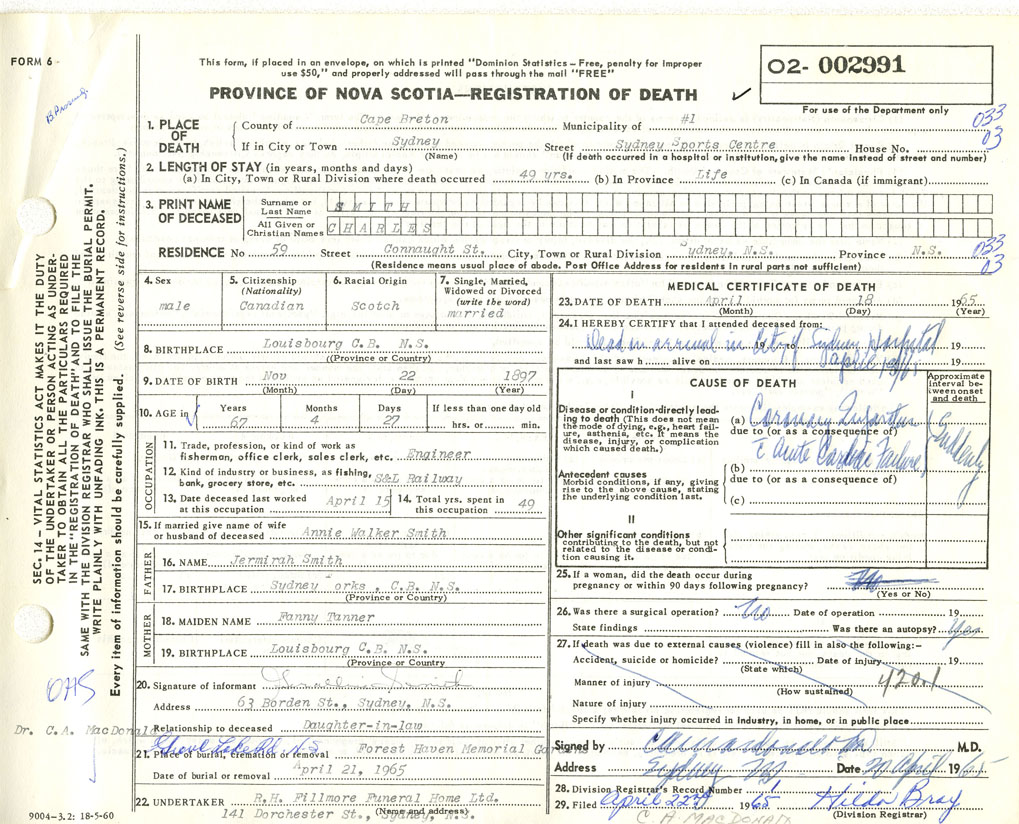 FORM 6 -
B. Proving.
This form, if placed in an envelope, on which is printed "Dominion Statistics – Free, penalty for improper
use $50," and properly addressed will pass through the mail "FREE"
PROVINCE OF NOVA SCOTIA—REGISTRATION OF DEATH
✓
02- 002991
For use of the Department only
033
03
1. PLACE OF DEATH
County of Cape Breton Municipality of #1
If in City or Town Sydney Street Sydney Sports Centre House No.
(Name) (If death occurred in a hospital or institution, give the name instead of street and number)
2. LENGTH OF STAY (in years, months and days)
(a) In City, Town or Rural Division where death occurred 49 yrs. (b) In Province Life (c) In Canada (if immigrant)
3. PRINT NAME OF DECEASED
Surname or Last Name SMITH
All Given or Christian Names CHARLES
RESIDENCE No 59 Street Connaught St. City, Town or Rural Division Sydney, N.S. Province N.S.
033
03
(Residence means usual place of abode. Post Office Address for residents in rural parts not sufficient)
4. Sex male
5. Citizenship (Nationality) Canadian
6. Racial Origin Scotch
7. Single, Married, Widowed or Divorced (write the word) married
8. BIRTHPLACE Louisbourg C.B. N.S.
((Province or Country)
9. DATE OF BIRTH Nov 22 1897
(Month) (Day) (Year)
10. AGE in Years 67 Months 4 Days 27 If less than one day old hrs. or min.
OCCUPATION
11. Trade, profession, or kind of work as
fisherman, office clerk, sales clerk, etc. Engineer
12. Kind of industry or business, as fishing,
bank, grocery store, etc. S&L Railway
13. Date deceased last worked at this occupation April 15
14. Total yrs. spent in this occupation 49
15. If married give name of wife
or husband of deceased Annie Walker Smith
FATHER
16. NAME Jermirah Smith
17. BIRTHPLACE Sydney orks , C.B. N.S.
(Province or Country)
MOTHER
18. MAIDEN NAME Fanny Tanner
19. BIRTHPLACE Louisbourg C.B. N.S.
(Province or Country
20. Signature of informant
Address 63 Borden St., Sydney, N.S.
Relationship to deceased Daughter-in-law
21. Place of burial, cremation or removal Forest Haven Memorial Gardens
Date of burial or removal April 21, 1965
22. UNDERTAKER R.H. Fillmore Funeral Home Ltd.
(Name and address)
141 Dorchester St., Sydney, N.S.
9004-3.2: 18-5-60
MEDICAL CERTIFICATE OF DEATH
23. DATE OF DEATH April 18 1965
(Month) (Day) (Year)
24. I HEREBY CERTIFY that I attended deceased from:
Dead on arrival in City of Sydney Hospital
19 to 19
and last saw h alive on April 18/65 19
CAUSE OF DEATH
Approximate interval between onset and death
I
Disease or condition directly leading to death (This does not mean the mode of dying, e.g., heart failure, asthenia, etc. It means the disease, injury, or complication which caused death.)
(a) Coronary Infarction
due to (or as a consequence of)
c̄ Acute Cardiac Failure
Suddenly
Antecedent causes
Morbid conditions, if any, giving rise to the above cause, stating the underlying condition last.
(b)
due to (or as a consequence of)
(c)
II
Other significant conditions
contributing to the death, but not related to the disease or condition causing it.
25. If a woman, did the death occur during
pregnancy or within 90 days following pregnancy?
(Yes or No)
26. Was there a surgical operation? No Date of operation 19
State findings Was there an autopsy? Yes
27. If death was due to external causes (violence) fill in also the following:–
Accident, suicide or homicide? Date of injury 19
(State which)
Manner of injury 420.1
(How sustained)
Nature of injury
Specify whether injury occurred in Industry, in home, or in public place
Signed by M.D.
Address Sydney NS Date 20 April 1965
28. Division Registrar's Record Number
29. Filed April 22nd 1965 Hilda Bray
(Division Registrar)
C. A. MacDonald
SEC. 14 – VITAL STATISTICS ACT MAKES IT THE DUTY
OF THE UNDERTAKER OR PERSON ACTING AS UNDER-
TAKER TO OBTAIN ALL THE PARTICULARS REQUIRED
IN THE "REGISTRATION OF DEATH" AND TO FILE THE
SAME WITH THE DIVISION REGISTRAR WHO SHALL ISSUE THE BURIAL PERMIT.
WRITE PLAINLY WITH UNFADING INK. THIS IS A PERMANENT RECORD.
Every item of information should be carefully supplied. (See reverse side for instructions,)
OAS
Dr. C.A. MacDonald